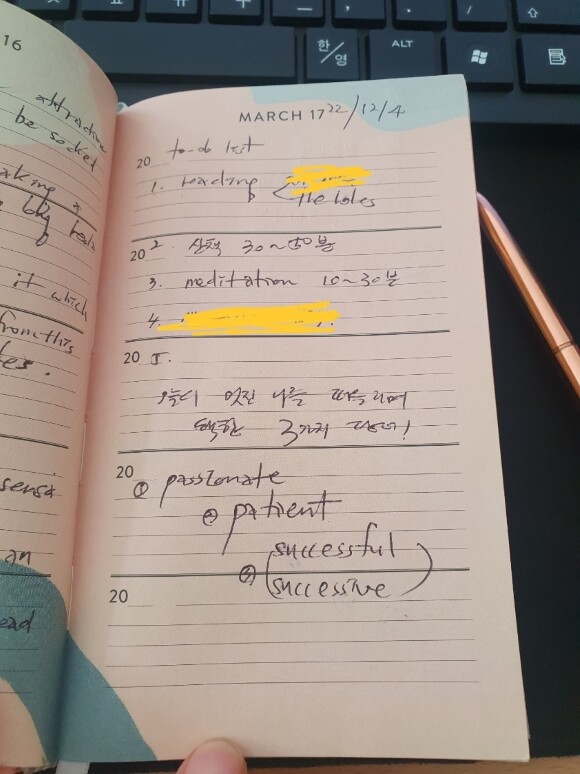 16
attractive
be socket
it which
from this
sense
an
한/영
ALT
MARCH 17 22/12/4
20 to-do list
1. reading
The holes
20 2. 산책 30~50분
3. meditation 10~30분
4.
20 5.
오늘의 멋진 나를 떠올리며
택한 3가지 단어!
20
① passionate
② patient
③ (successful
successive)
20